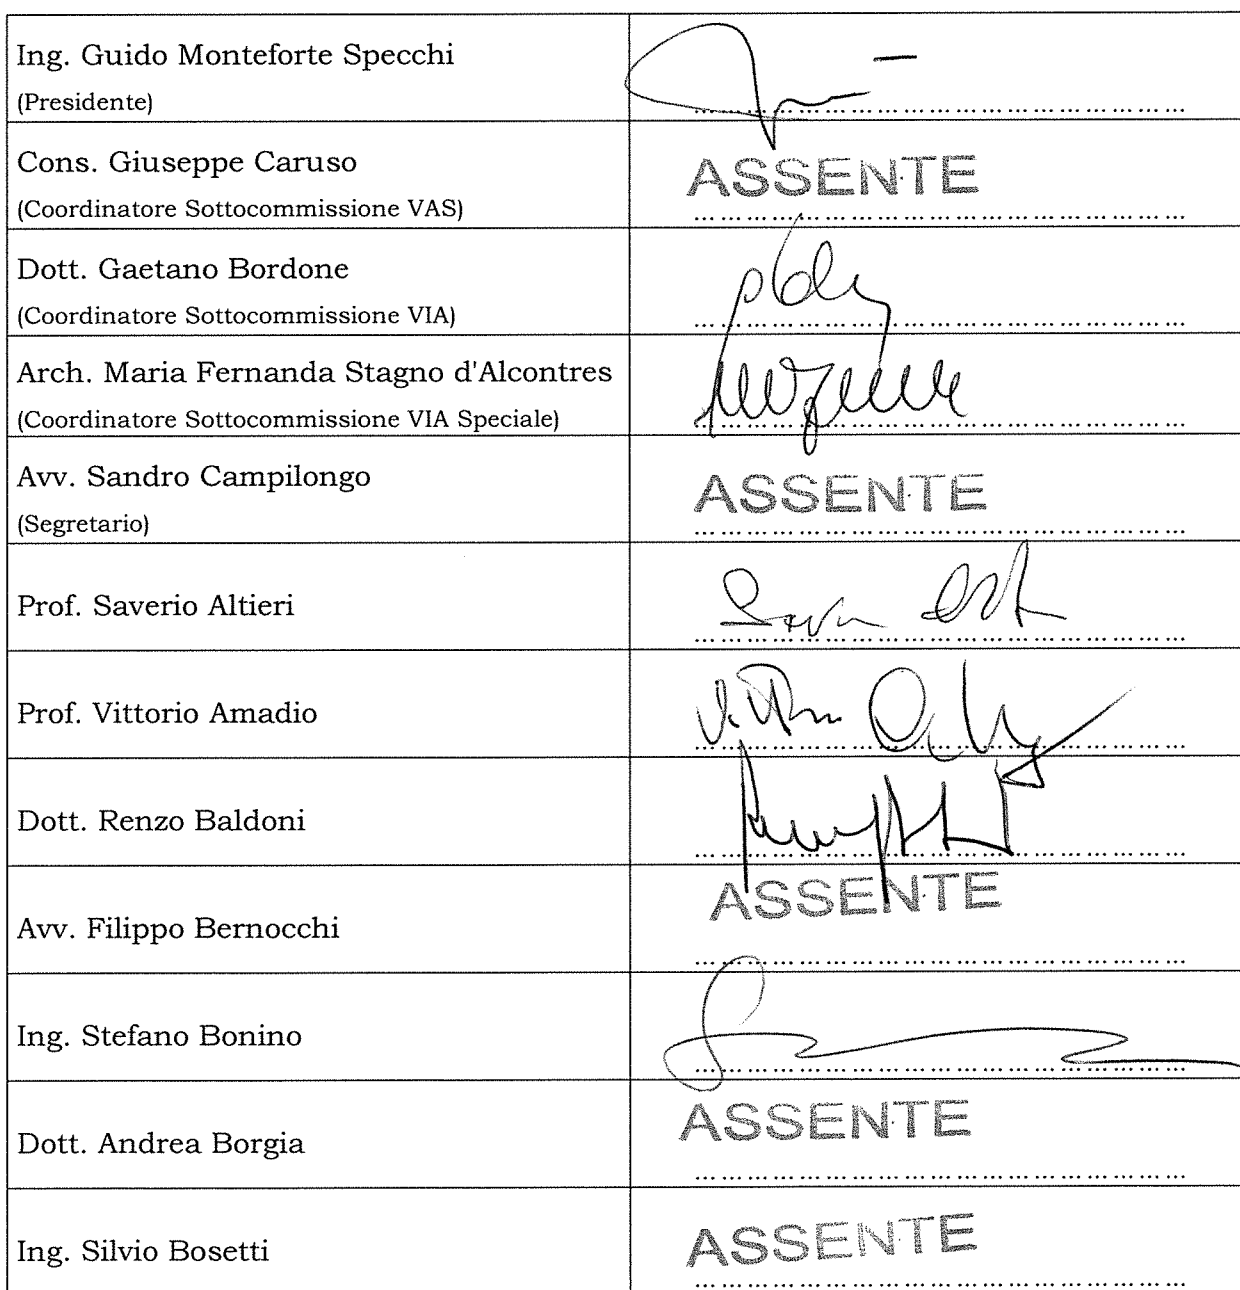 Ing. Guido Monteforte Specchi
(Presidente)
Cons. Giuseppe Caruso
(Coordinatore Sottocommissione VAS)
ASSENTE
Dott. Gaetano Bordone
(Coordinatore Sottocommissione VIA)
Arch. Maria Fernanda Stagno d'Alcontres
(Coordinatore Sottocommissione VIA Speciale)
Avv. Sandro Campilongo
(Segretario)
ASSENTE
Prof. Saverio Altieri
Prof. Vittorio Amadio
Dott. Renzo Baldoni
Avv. Filippo Bernocchi
ASSENTE
Ing. Stefano Bonino
Dott. Andrea Borgia
ASSENTE
Ing. Silvio Bosetti
ASSENTE